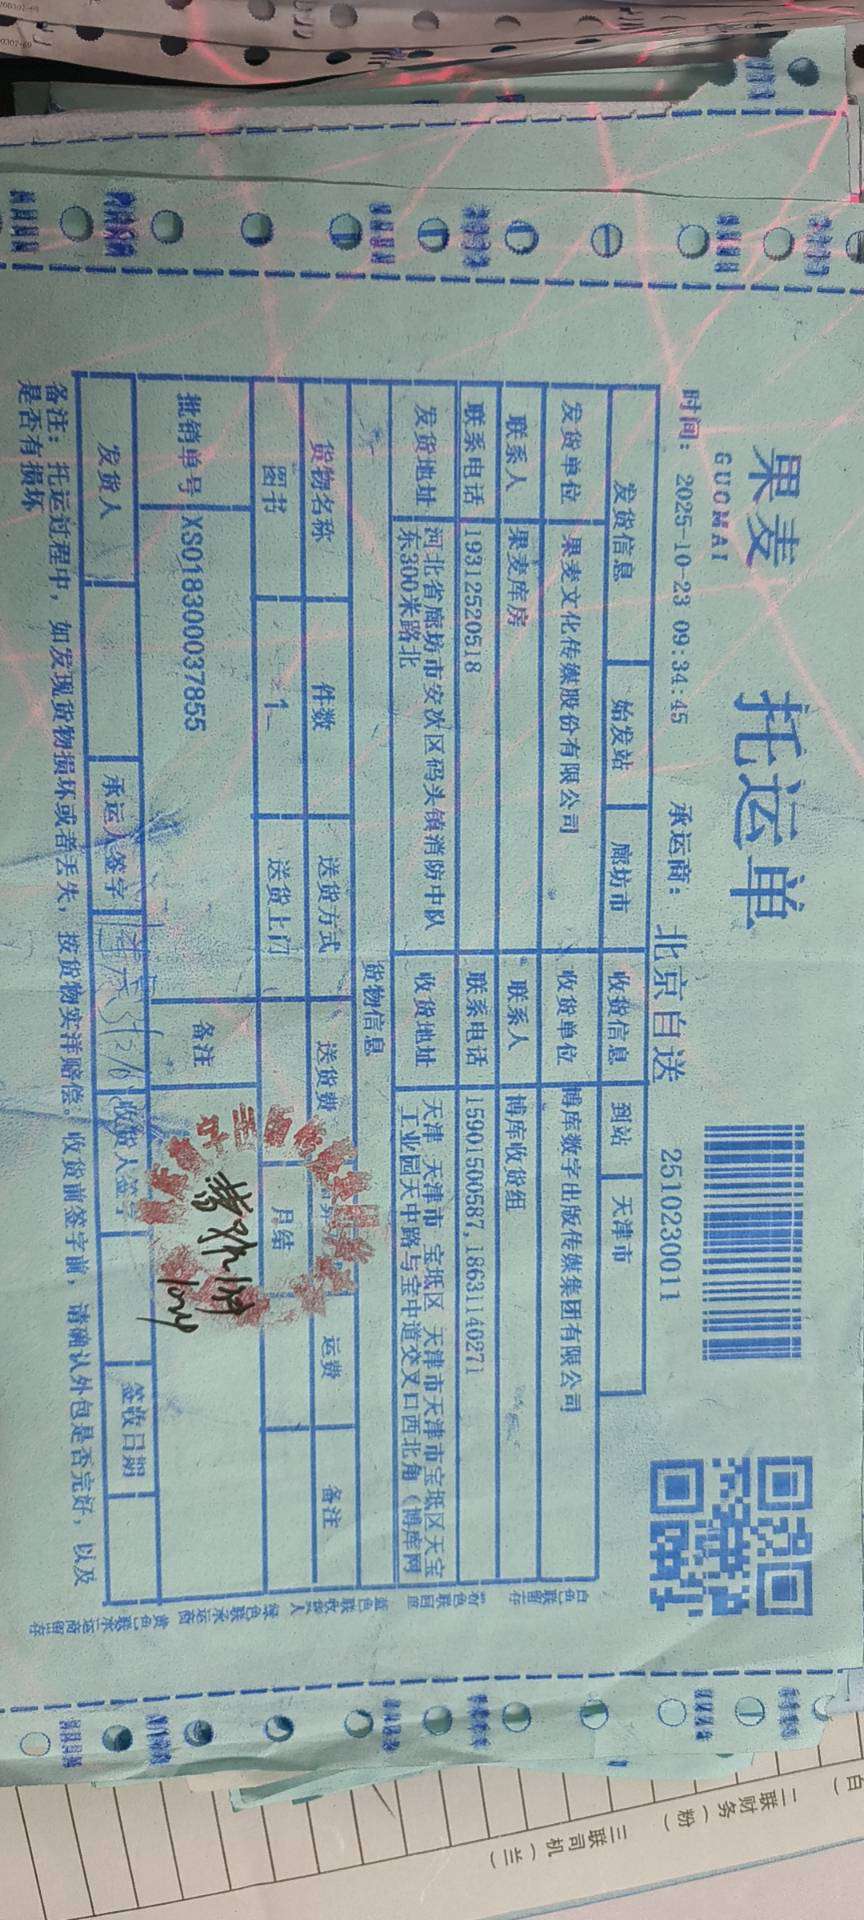 果麦 托运单
GUOMAI
时间: 2025-10-23 09:34:45 承运商: 北京自送 2510230011
发货信息 始发站 廊坊市 收货信息 到站 天津市
发货单位 果麦文化传媒股份有限公司 收货单位 博库数字出版传媒集团有限公司
联系人 果麦库房 联系人 博库收货组
联系电话 19312520518 联系电话 15901500587,18631140271
发货地址 河北省廊坊市安次区码头镇消防中队 收货地址 天津 天津市 宝坻区 天津市天津市宝坻区天宝
东300米路北 工业园天中路与宝中道交叉口西北角(博库网
货物信息
货物名称 件数 送货方式 送货费 运费 备注
图书 1 送货上门 月结
批销单号 XS018300037855 备注
发货人 承运人签字 收货人签字 签收日期
备注: 托运过程中,如发现货物损坏或者丢失,按货物实洋赔偿。收货前签字前,请确认外包是否完好,以及
是否有损坏
白色联留存 粉色联回单 蓝色联收货人 绿色联承运商 黄色联承运商留存
二联财务(粉)
三联司机(兰)